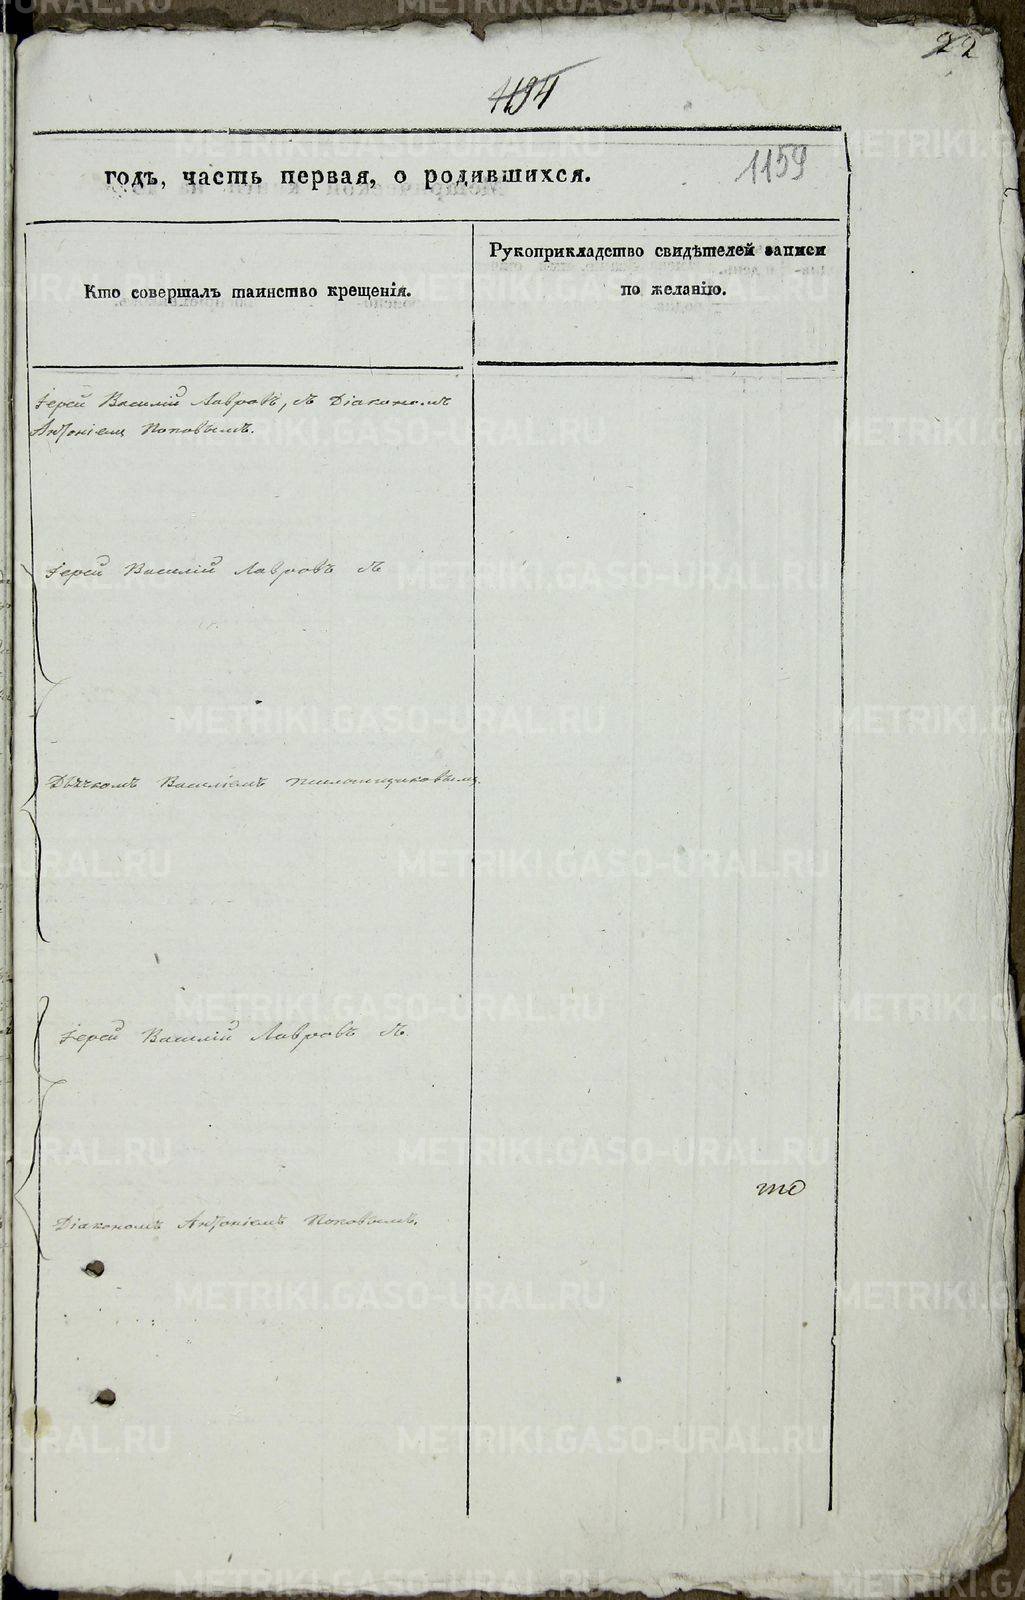 22
1194
1159
годъ, часть первая, о родившихся.
Кто совершалъ таинство крещенія.
Рукоприкладство свидѣтелей записи
по желанію.
Іерей Василій Лавровъ, съ Діакономъ
Антоніемъ Поповымъ.
Іерей Василій Лавровъ съ
Дьячкомъ Василіемъ
Іерей Василій Лавровъ съ
Діакономъ Антоніемъ Поповымъ.
METRIKI.GASO-URAL.RU